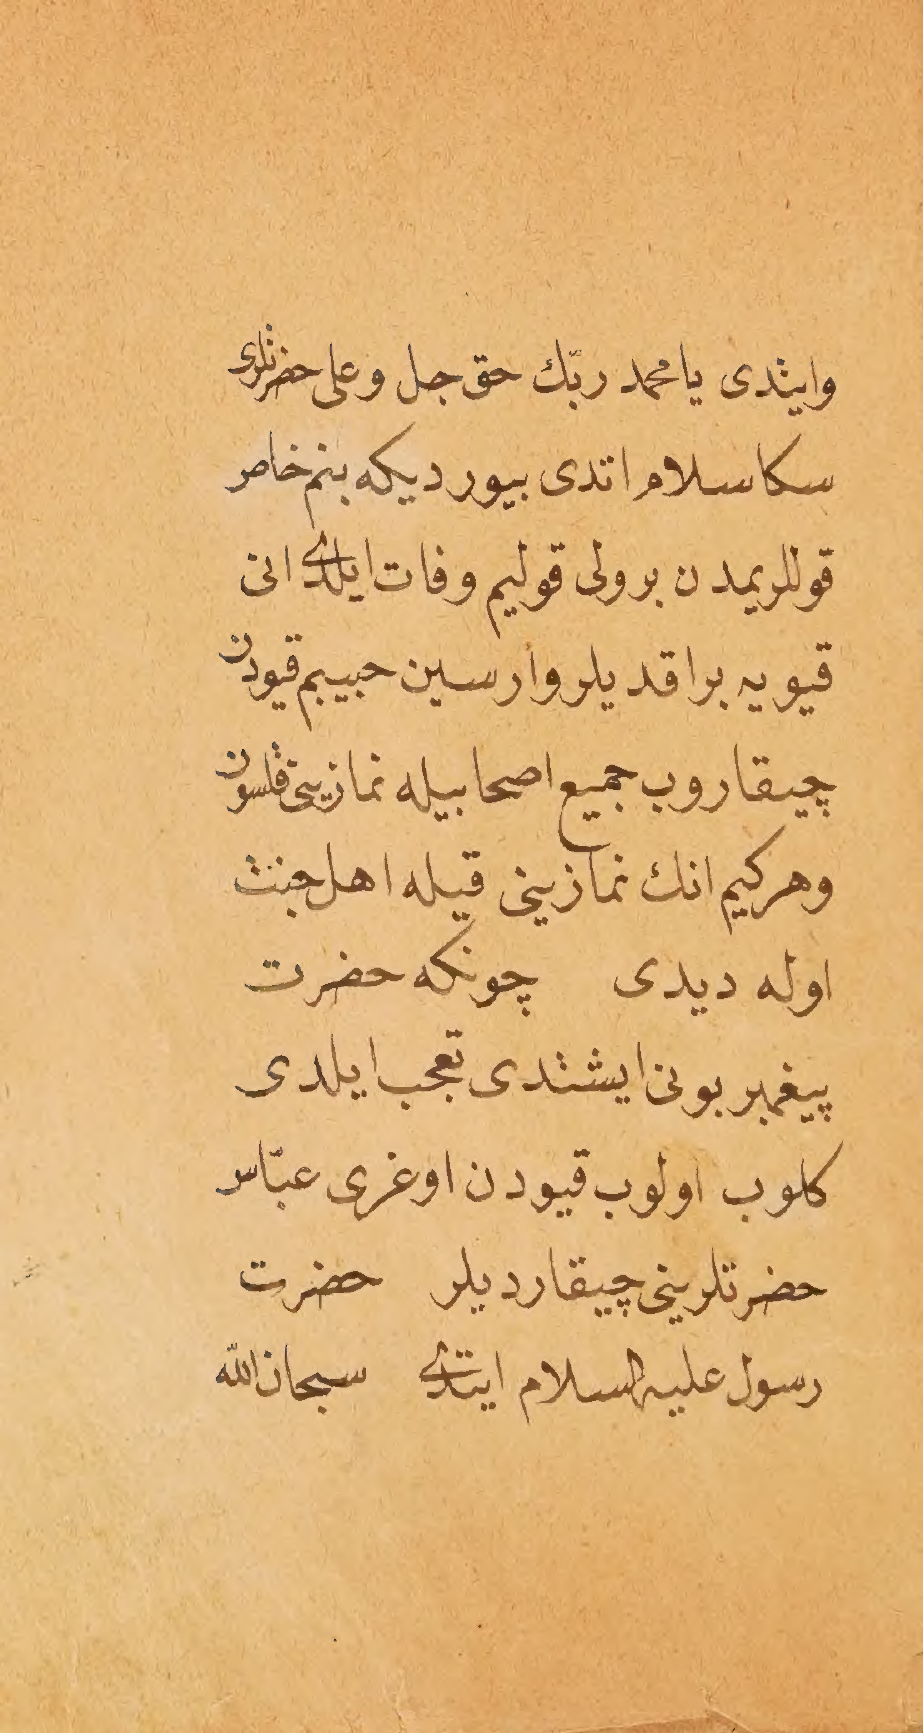 وايتدى يا محمد ربّك حق جل وعلى حضرتلرى
سكا سلام اتدى بيورديكه بنم خاص
قوللريمدن بر ولى قوليم وفات ايلدى انى
قيويه براقديلر وارسين حبيبم قيودن
چيقاروب جميع اصحابيله نمازينى قلسون
وهر كيم انك نمازينى قيله اهل جنت
اوله ديدى چونكه حضرت
پيغمبر بونى ايشتدى تعجب ايلدى
كلوب اولوب قيودن اوغرى عبّاس
حضرتلرينى چيقارديلر حضرت
رسول عليه السلام ايتدى سبحان الله